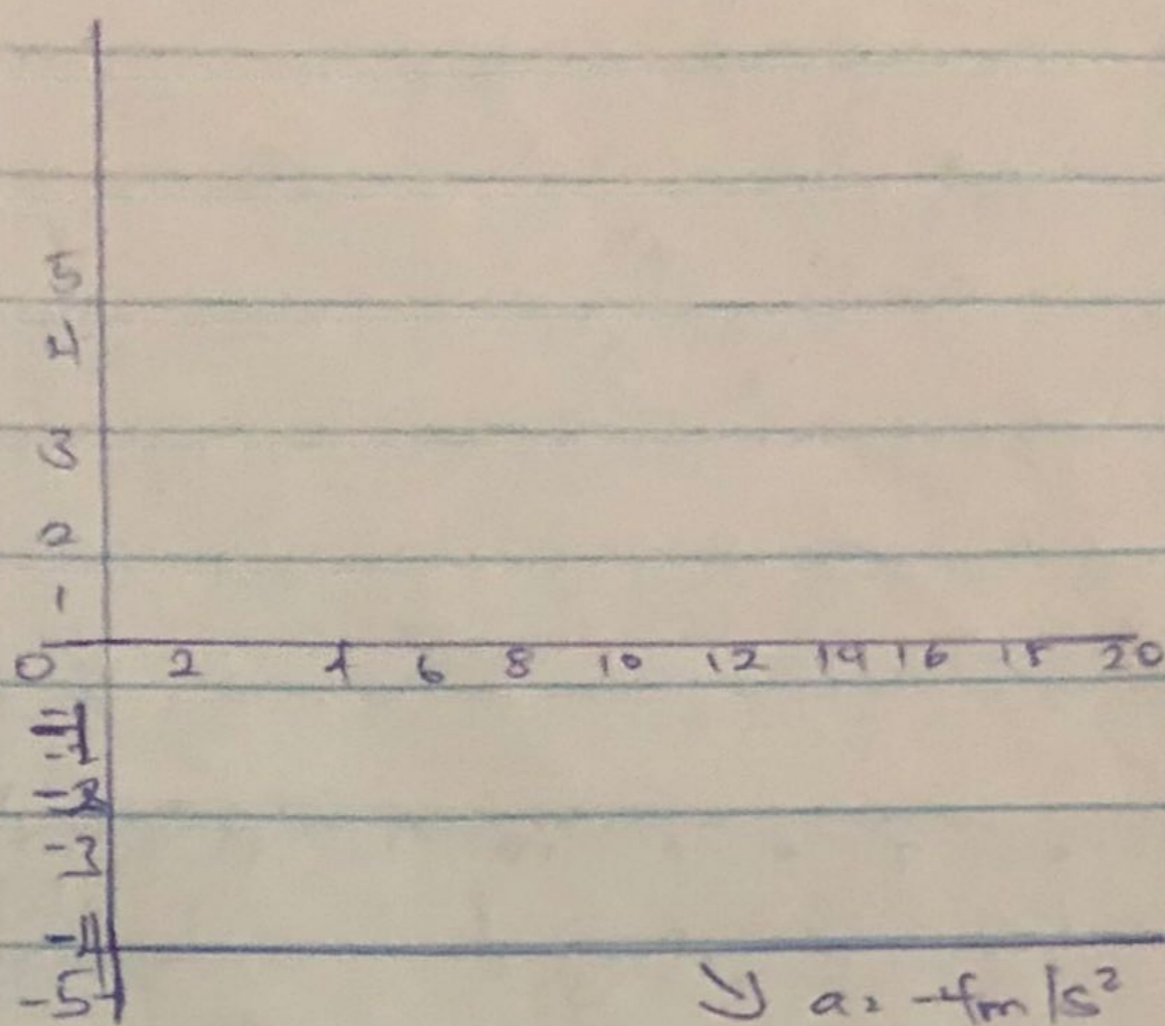 5
4
3
2
1
0 2 4 6 8 10 12 14 16 18 20
-1
-2
-3
-4
-5
a = -4m/s²